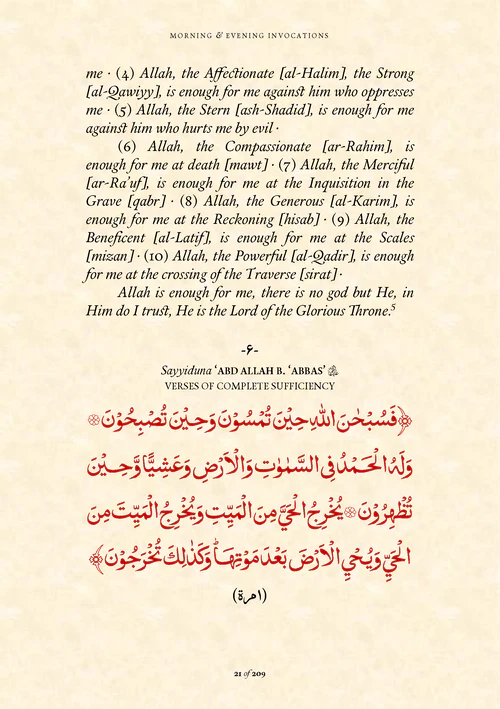 MORNING & EVENING INVOCATIONS
me · (4) Allah, the Affectionate [al-Halim], the Strong
[al-Qawiyy], is enough for me against him who oppresses
me · (5) Allah, the Stern [ash-Shadid], is enough for me
against him who hurts me by evil ·
(6) Allah, the Compassionate [ar-Rahim], is
enough for me at death [mawt] · (7) Allah, the Merciful
[ar-Ra'uf], is enough for me at the Inquisition in the
Grave [qabr] · (8) Allah, the Generous [al-Karim], is
enough for me at the Reckoning [hisab] · (9) Allah, the
Beneficent [al-Latif], is enough for me at the Scales
[mizan] · (10) Allah, the Powerful [al-Qadir], is enough
for me at the crossing of the Traverse [sirat] ·
Allah is enough for me, there is no god but He, in
Him do I trust, He is the Lord of the Glorious Throne.⁵
-۶-
Sayyiduna ‘ABD ALLAH B. ‘ABBAS’
VERSES OF COMPLETE SUFFICIENCY
﴿فَسُبْحٰنَ اللّٰهِ حِيْنَ تُمْسُوْنَ وَحِيْنَ تُصْبِحُوْنَ ۞
وَلَهُ الْحَمْدُ فِي السَّمٰوٰتِ وَالْاَرْضِ وَعَشِيًّا وَّحِيْنَ
تُظْهِرُوْنَ ۞ يُخْرِجُ الْحَيَّ مِنَ الْمَيِّتِ وَيُخْرِجُ الْمَيِّتَ مِنَ
الْحَيِّ وَيُحْيِ الْاَرْضَ بَعْدَ مَوْتِهَا ؕ وَكَذٰلِكَ تُخْرَجُوْنَ﴾
(١مرة)
21 of 209